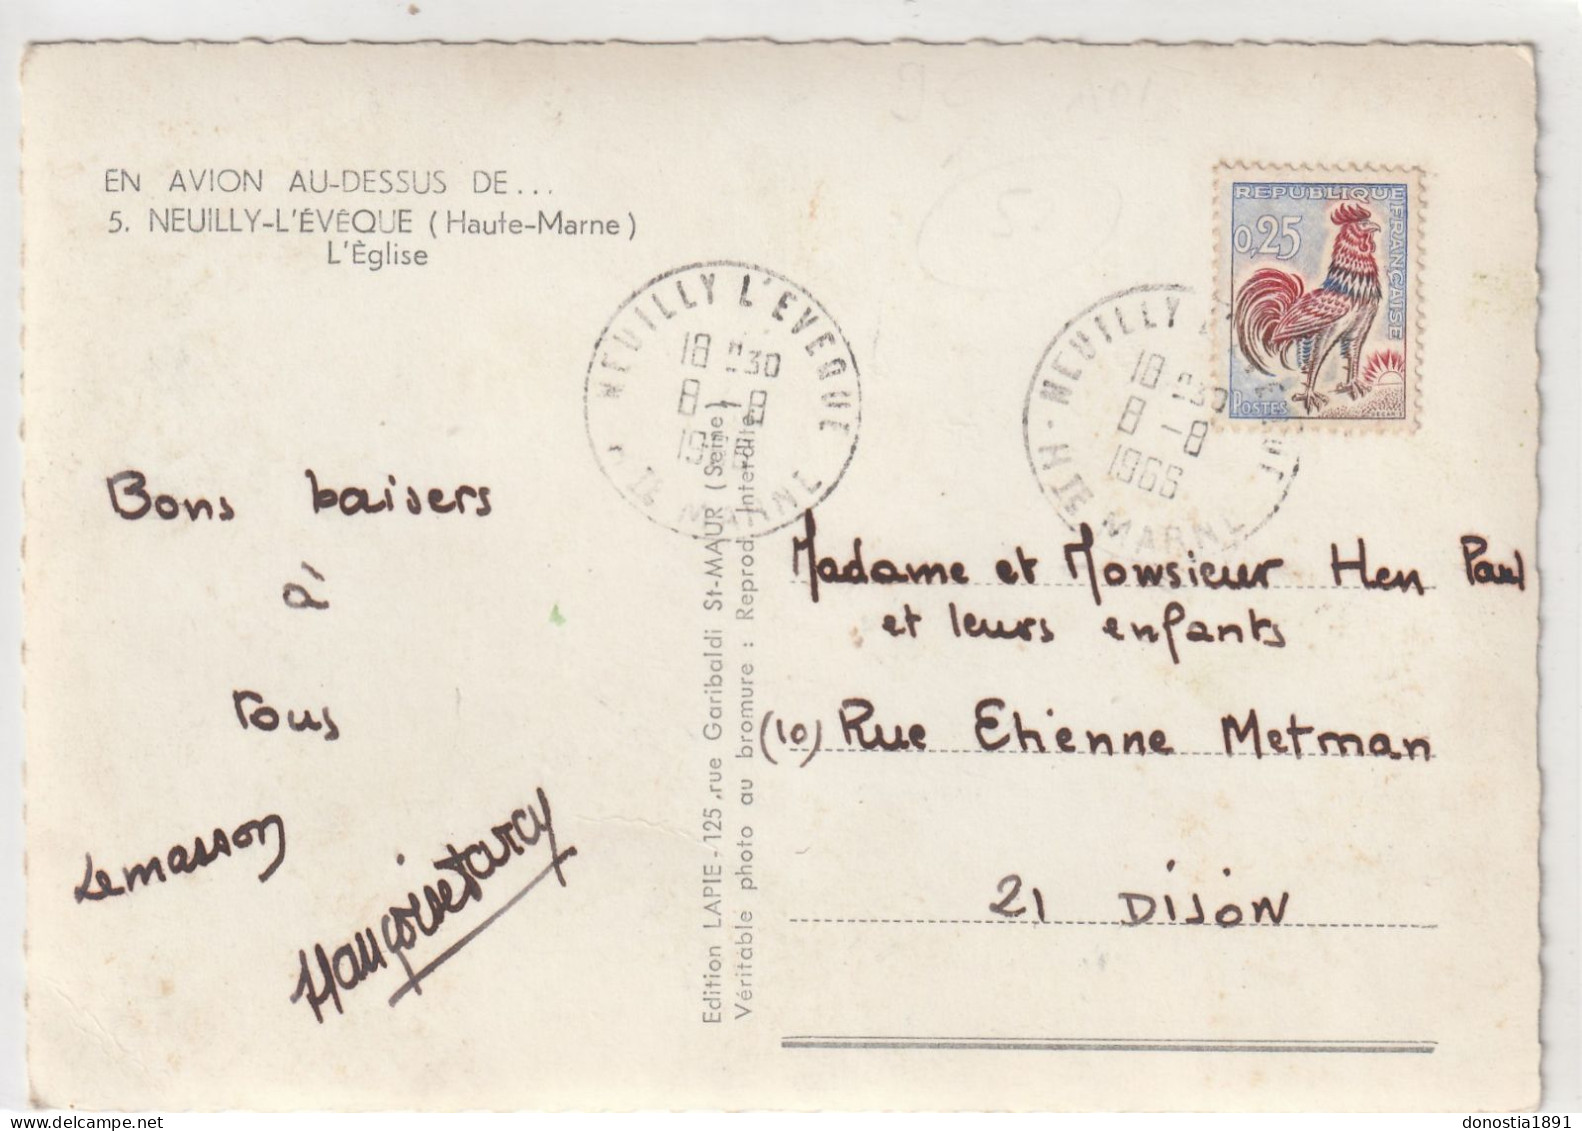 EN AVION AU-DESSUS DE...
5. NEUILLY-L'ÉVÊQUE (Haute-Marne)
L'Église
NEUILLY L'EVEQUE
18 H30
8 -8
1966
Hte MARNE
NEUILLY L'EVEQUE
18 H30
8 -8
1966
Hte MARNE
REPUBLIQUE FRANÇAISE
0,25
POSTES
Bons baisers
à
tous
Lemasson
Edition LAPIE - 125, rue Garibaldi St-MAUR (Seine)
Véritable photo au bromure : Reprod. Interdite.
Madame et Monsieur Hen Paul
et leurs enfants
(10) Rue Etienne Metman
21 DIJON
donostia1891